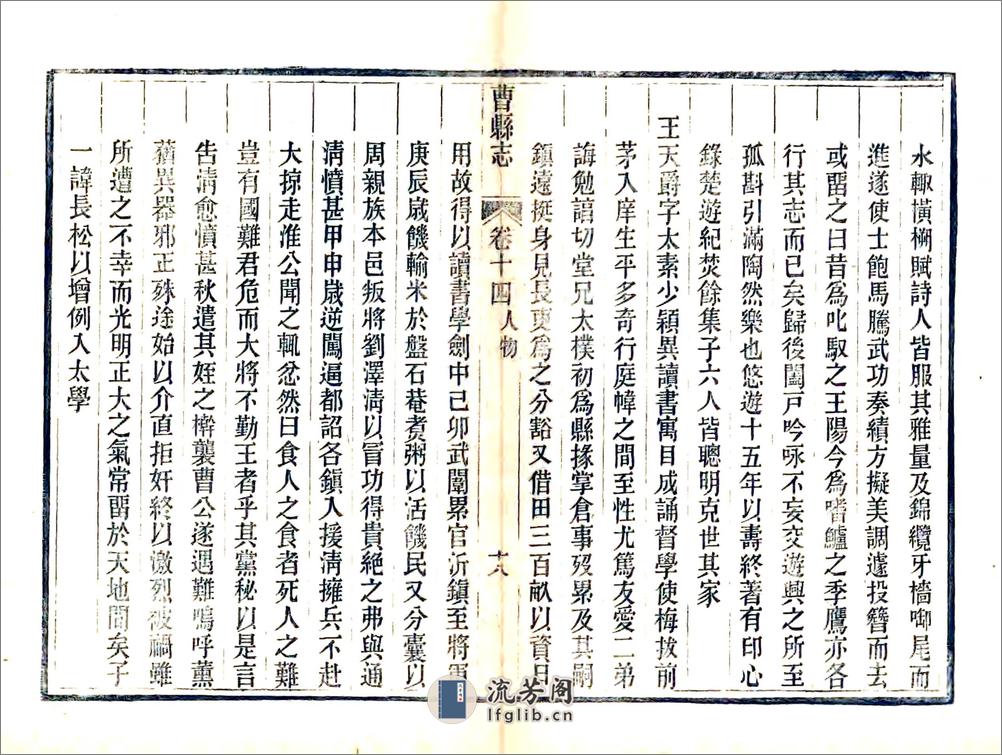 水輙横槊賦詩人皆服其雅量及錦纜牙檣啣尾而
進遂使士飽馬騰武功奏績方擬美調遽投簪而去
或畱之曰昔爲叱馭之王陽今爲嗜鱸之季鷹亦各
行其志而已矣歸後闔戸吟咏不妄交遊興之所至
孤斟引滿陶然樂也悠遊十五年以壽終著有印心
錄楚遊紀焚餘集子六人皆聰明克世其家
王天爵字太素少穎異讀書寓目成誦督學使梅拔前
茅入庠生平多奇行庭幃之間至性尤篤友愛二弟
誨勉諳切堂兄太樸初爲縣掾掌倉事歿累及其嗣
鎮遠挺身見長吏爲之分豁又借田三百畝以資日
曹縣志
卷十四
人物
十八
用故得以讀書學劍中己卯武闈累官沂鎮至將軍
庚辰歲饑輸米於盤石菴煮粥以活饑民又分囊以
周親族本邑叛將劉澤淸以冒功得貴絶之弗與通
淸憤甚甲申歲逆闖逼都詔各鎮入援淸擁兵不赴
大掠走淮公聞之輒忿然曰食人之食者死人之難
豈有國難君危而大將不勤王者乎其黨秘以是言
告淸愈憤甚秋遣其姪之榦襲曹公遂遇難嗚呼薰
蕕異器邪正殊途始以介直拒奸終以激烈被禍雖
所遭之不幸而光明正大之氣常畱於天地間矣子
一諱長松以增例入太學
流芳阁
lfglib.cn